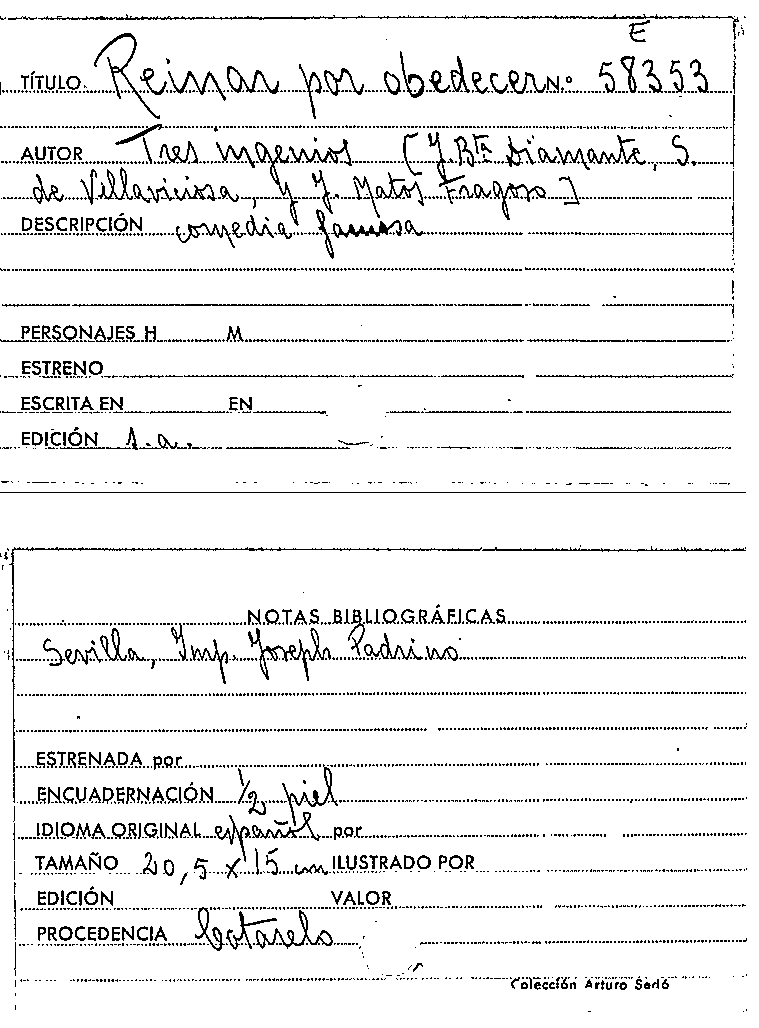 E
TÍTULO. Reinar por obedecer N.º 58353
AUTOR Tres ingenios [J. Bta Diamante, S.
de Villaviciosa, y J. Matos Fragoso]
DESCRIPCIÓN comedia famosa
PERSONAJES H M
ESTRENO
ESCRITA EN EN
EDICIÓN s.a.
NOTAS BIBLIOGRÁFICAS
Sevilla, Imp. Joseph Padrino
ESTRENADA por
ENCUADERNACIÓN 1/2 piel
IDIOMA ORIGINAL español por
TAMAÑO 20,5 x 15 cm ILUSTRADO POR
EDICIÓN VALOR
PROCEDENCIA Cotarelo
Colección Arturo Sedó